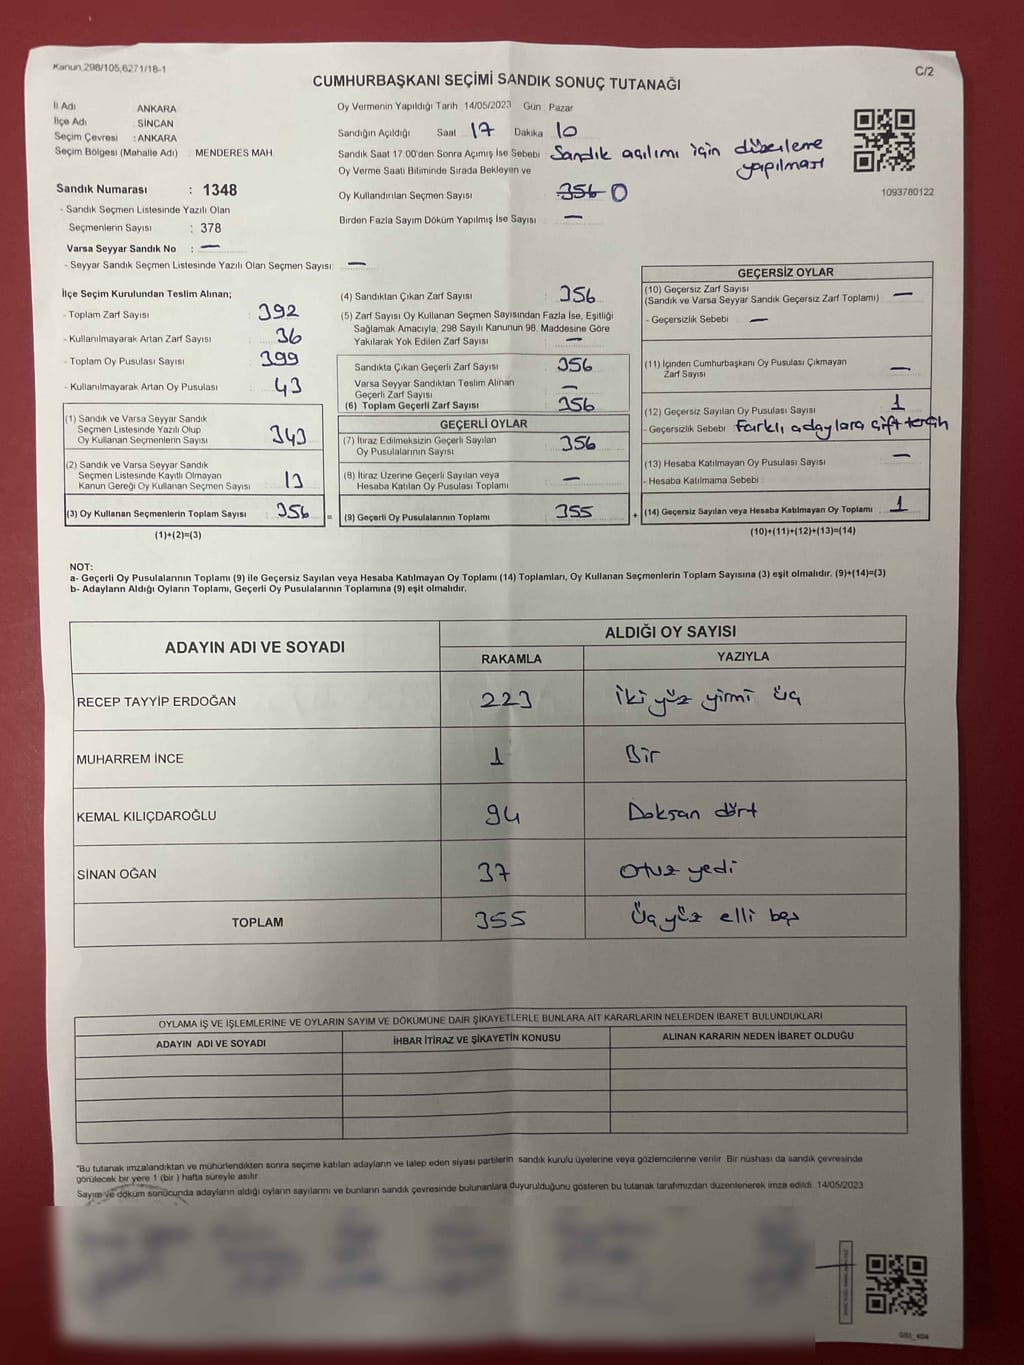 Kanun 298/105,6271/18-1
C/2
CUMHURBAŞKANI SEÇİMİ SANDIK SONUÇ TUTANAĞI
İl Adı ANKARA
İlçe Adı SİNCAN
Seçim Çevresi : ANKARA
Seçim Bölgesi (Mahalle Adı) MENDERES MAH.
Oy Vermenin Yapıldığı Tarih 14/05/2023 Gün Pazar
Sandığın Açıldığı Saat 17 Dakika 10
Sandık Saat 17:00'den Sonra Açımış İse Sebebi Sandık açılımı için düzenleme yapılması
Oy Verme Saati Bitiminde Sırada Bekleyen ve
Oy Kullandırılan Seçmen Sayısı 356 0
Birden Fazla Sayım Döküm Yapılmış İse Sayısı —
1093780122
Sandık Numarası : 1348
- Sandık Seçmen Listesinde Yazılı Olan
Seçmenlerin Sayısı : 378
Varsa Seyyar Sandık No : —
- Seyyar Sandık Seçmen Listesinde Yazılı Olan Seçmen Sayısı: —
İlçe Seçim Kurulundan Teslim Alınan;
- Toplam Zarf Sayısı 392
- Kullanılmayarak Artan Zarf Sayısı 36
- Toplam Oy Pusulası Sayısı 399
- Kullanılmayarak Artan Oy Pusulası 43
(1) Sandık ve Varsa Seyyar Sandık
Seçmen Listesinde Yazılı Olup
Oy Kullanan Seçmenlerin Sayısı 343
(2) Sandık ve Varsa Seyyar Sandık
Seçmen Listesinde Kayıtlı Olmayan
Kanun Gereği Oy Kullanan Seçmen Sayısı 13
(3) Oy Kullanan Seçmenlerin Toplam Sayısı 356 =
(1)+(2)=(3)
(4) Sandıktan Çıkan Zarf Sayısı 356
(5) Zarf Sayısı Oy Kullanan Seçmen Sayısından Fazla İse, Eşitliği
Sağlamak Amacıyla, 298 Sayılı Kanunun 98. Maddesine Göre
Yakılarak Yok Edilen Zarf Sayısı —
Sandıkta Çıkan Geçerli Zarf Sayısı 356
Varsa Seyyar Sandıktan Teslim Alınan
Geçerli Zarf Sayısı —
(6) Toplam Geçerli Zarf Sayısı 356
GEÇERLİ OYLAR
(7) İtiraz Edilmeksizin Geçerli Sayılan
Oy Pusulalarının Sayısı 356
(8) İtiraz Üzerine Geçerli Sayılan veya
Hesaba Katılan Oy Pusulası Toplamı —
(9) Geçerli Oy Pusulalarının Toplamı 355 +
GEÇERSİZ OYLAR
(10) Geçersiz Zarf Sayısı
(Sandık ve Varsa Seyyar Sandık Geçersiz Zarf Toplamı) —
- Geçersizlik Sebebi —
(11) İçinden Cumhurbaşkanı Oy Pusulası Çıkmayan
Zarf Sayısı —
(12) Geçersiz Sayılan Oy Pusulası Sayısı 1
- Geçersizlik Sebebi Farklı adaylara çift tercih
(13) Hesaba Katılmayan Oy Pusulası Sayısı —
- Hesaba Katılmama Sebebi
(14) Geçersiz Sayılan veya Hesaba Katılmayan Oy Toplamı 1
(10)+(11)+(12)+(13)=(14)
NOT:
a- Geçerli Oy Pusulalarının Toplamı (9) ile Geçersiz Sayılan veya Hesaba Katılmayan Oy Toplamı (14) Toplamları, Oy Kullanan Seçmenlerin Toplam Sayısına (3) eşit olmalıdır. (9)+(14)=(3)
b- Adayların Aldığı Oyların Toplamı, Geçerli Oy Pusulalarının Toplamına (9) eşit olmalıdır.
ADAYIN ADI VE SOYADI ALDIĞI OY SAYISI
RAKAMLA YAZIYLA
RECEP TAYYİP ERDOĞAN 223 İki yüz yirmi üç
MUHARREM İNCE 1 Bir
KEMAL KILIÇDAROĞLU 94 Doksan dört
SİNAN OĞAN 37 Otuz yedi
TOPLAM 355 Üç yüz elli beş
OYLAMA İŞ VE İŞLEMLERİNE VE OYLARIN SAYIM VE DÖKÜMÜNE DAİR ŞİKAYETLERLE BUNLARA AİT KARARLARIN NELERDEN İBARET BULUNDUKLARI
ADAYIN ADI VE SOYADI İHBAR İTİRAZ VE ŞİKAYETİN KONUSU ALINAN KARARIN NEDEN İBARET OLDUĞU
"Bu tutanak imzalandıktan ve mühürlendikten sonra seçime katılan adayların ve talep eden siyasi partilerin sandık kurulu üyelerine veya gözlemcilerine verilir. Bir nüshası da sandık çevresinde
görülecek bir yere 1 (bir) hafta süreyle asılır.
Sayım ve döküm sonucunda adayların aldığı oyların sayılarını ve bunların sandık çevresinde bulunanlara duyurulduğunu gösteren bu tutanak tarafımızdan düzenlenerek imza edildi. 14/05/2023